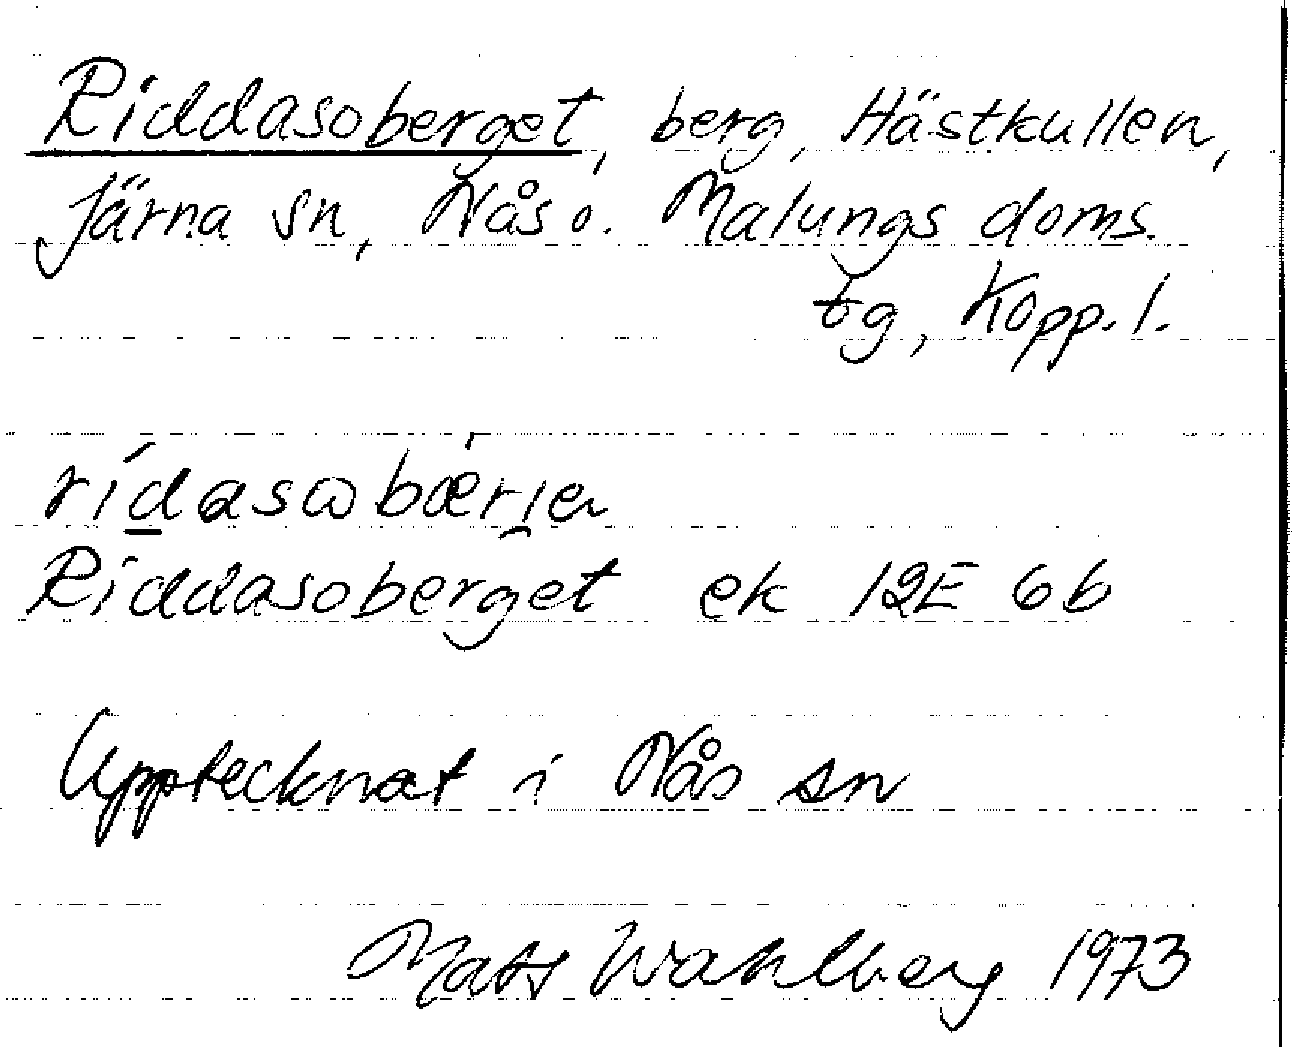 Riddasoberget, berg, Hästkullen,
Järna sn, Nås o. Malungs doms.
tg, Kopp. l.
rídasωbærjen
Riddasoberget ek 12E 6b
Upptecknat i Nås sn
Mats Wahlberg 1973